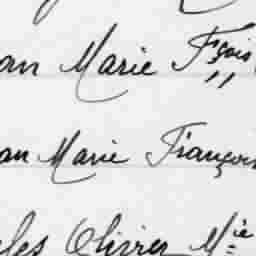 an Marie Fçois
an Marie François
les Olivier Mie